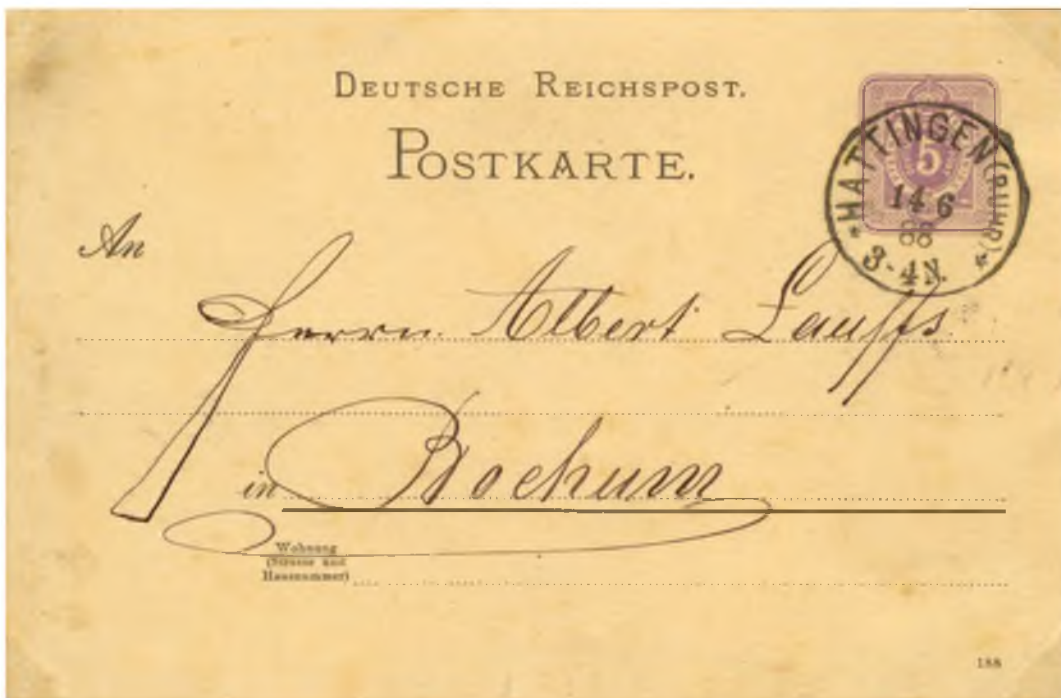 DEUTSCHE REICHSPOST.
POSTKARTE.
5
* HATTINGEN (RUHR) *
14 6
88
3-4N.
An
Herrn Albert Lauffs
in Bochum
Wohnung
(Strasse und
Hausnummer)
188